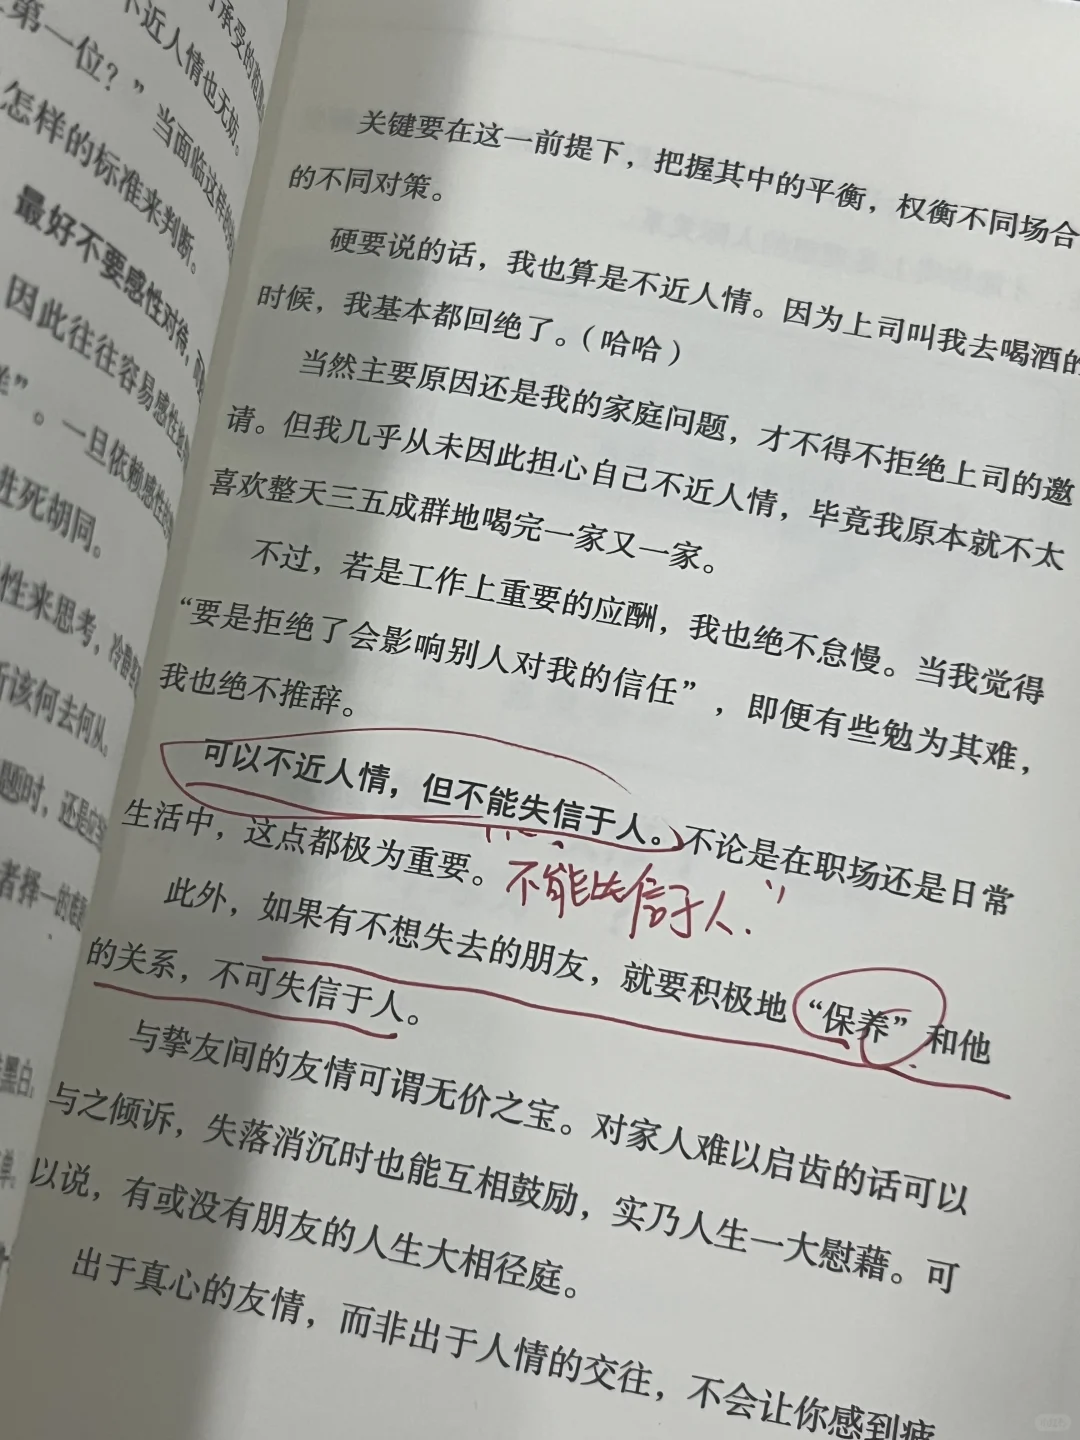 第一位？”当面临这样的
怎样的标准来判断。
最好不要感性对待，
因此往往容易感性
。一旦依赖感性
进死胡同。
性来思考，冷静
该何去何从。
题时，还是应
者择一的
黑白，
关键要在这一前提下，把握其中的平衡，权衡不同场合
的不同对策。
硬要说的话，我也算是不近人情。因为上司叫我去喝酒的
时候，我基本都回绝了。（哈哈）
当然主要原因还是我的家庭问题，才不得不拒绝上司的邀
请。但我几乎从未因此担心自己不近人情，毕竟我原本就不太
喜欢整天三五成群地喝完一家又一家。
不过，若是工作上重要的应酬，我也绝不怠慢。当我觉得
“要是拒绝了会影响别人对我的信任”，即便有些勉为其难，
我也绝不推辞。
可以不近人情，但不能失信于人。不论是在职场还是日常
生活中，这点都极为重要。
不能失信于人.
此外，如果有不想失去的朋友，就要积极地“保养”和他
的关系，不可失信于人。
与挚友间的友情可谓无价之宝。对家人难以启齿的话可以
与之倾诉，失落消沉时也能互相鼓励，实乃人生一大慰藉。可
以说，有或没有朋友的人生大相径庭。
出于真心的友情，而非出于人情的交往，不会让你感到疲